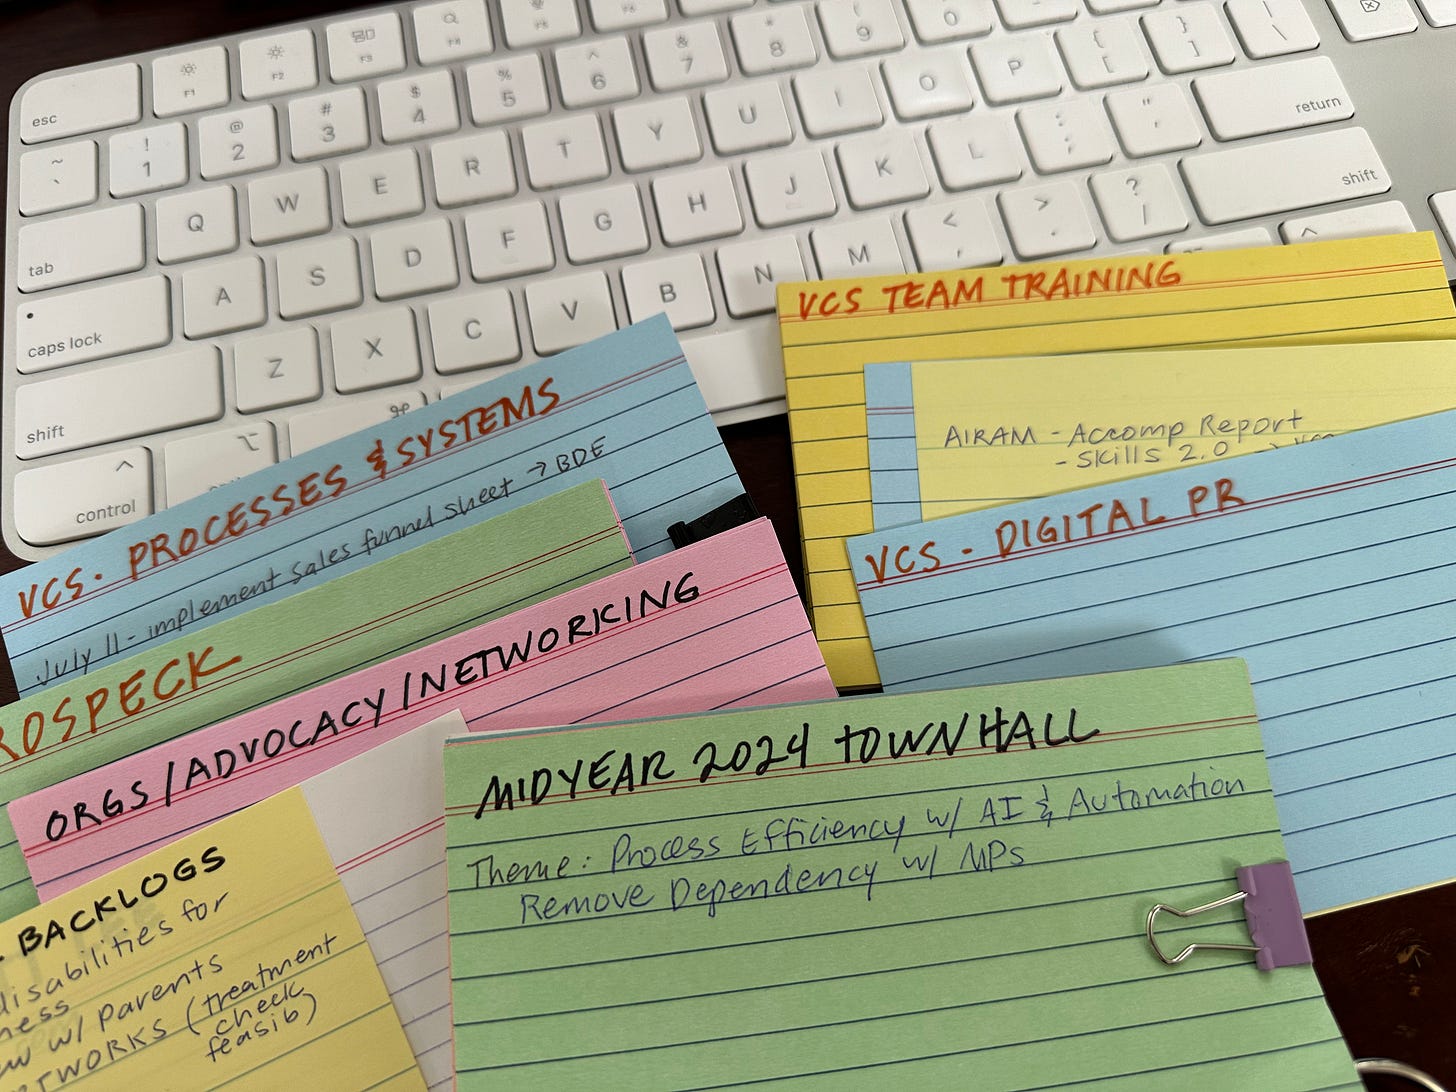 esc
F1
F2
F3
F4
~
`
!
1
@
2
#
3
$
4
%
5
^
6
&
7
*
8
(
9
)
0
{
[
}
]
|
\
tab
Q
W
E
R
T
Y
U
I
O
P
return
caps lock
A
S
D
F
G
H
J
K
L
:
;
"
'
shift
Z
X
C
V
B
N
M
<
,
>
.
?
/
shift
control
⌥
⌘
VCS TEAM TRAINING
AIRAM - Accomp Report
- Skills 2.0 →
VCS - DIGITAL PR
VCS. PROCESSES & SYSTEMS
July 11 - implement sales funnel sheet → BDE
ROSPECK
ORGS / ADVOCACY / NETWORKING
MIDYEAR 2024 TOWNHALL
Theme: Process Efficiency w/ AI & Automation
Remove Dependency w/ MPs
BACKLOGS
disabilities for
ness
ew w/ parents
TWORKS (treatment
check
feasib)